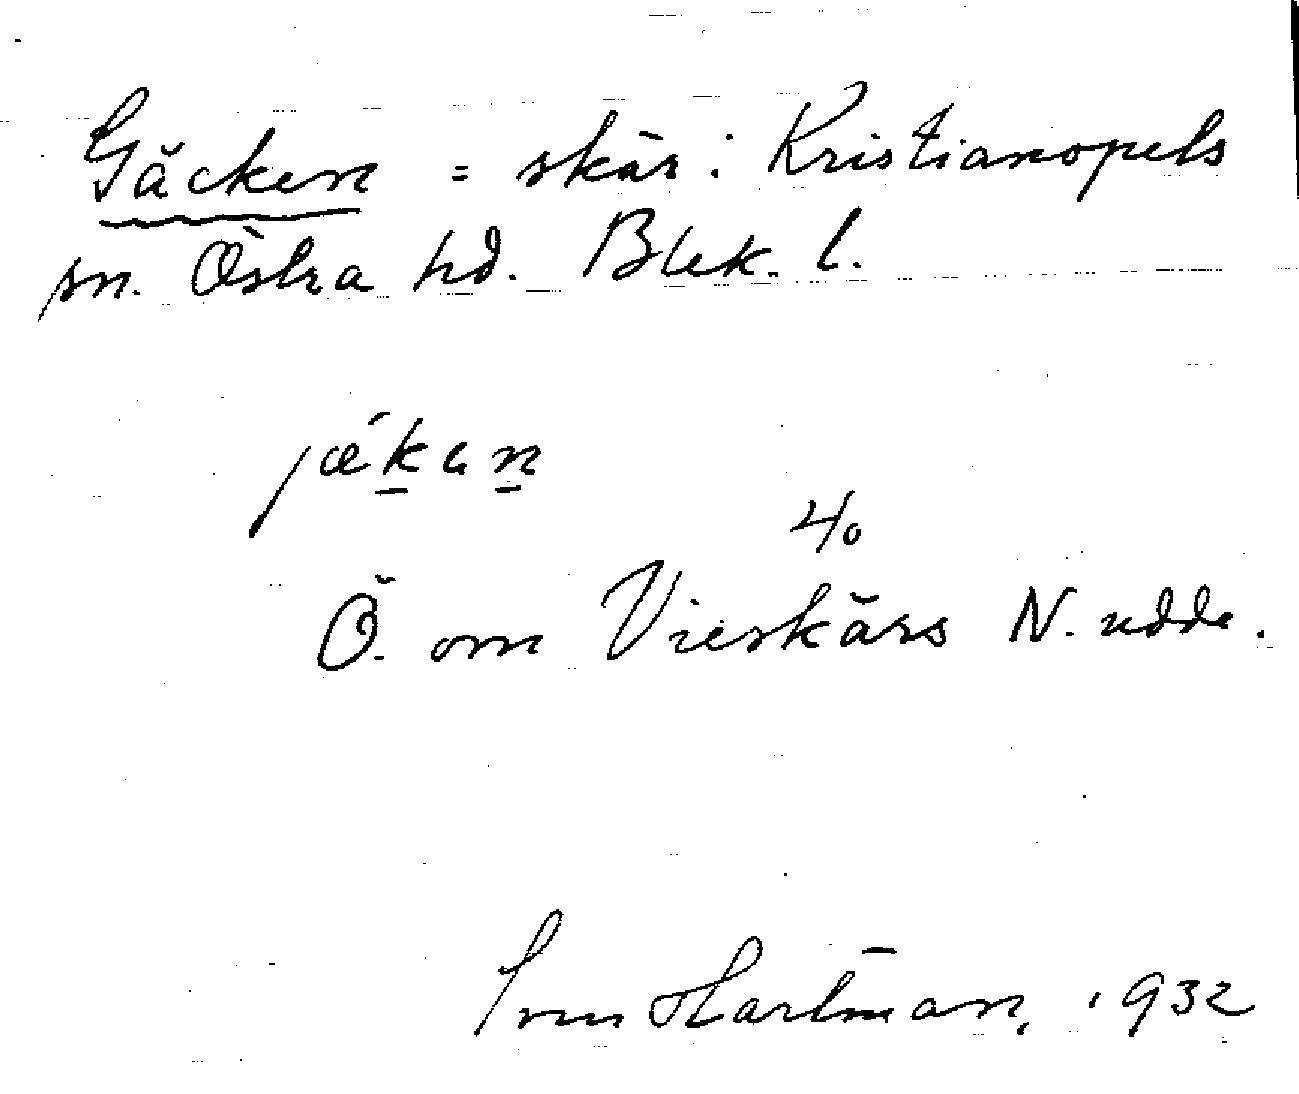 Gäcken = skär i Kristianopels
sn. Östra hd. Blek. l.
jǽkan
4/o
Ö. om Vieskärs N. udde.
Sven Hartman, 1932